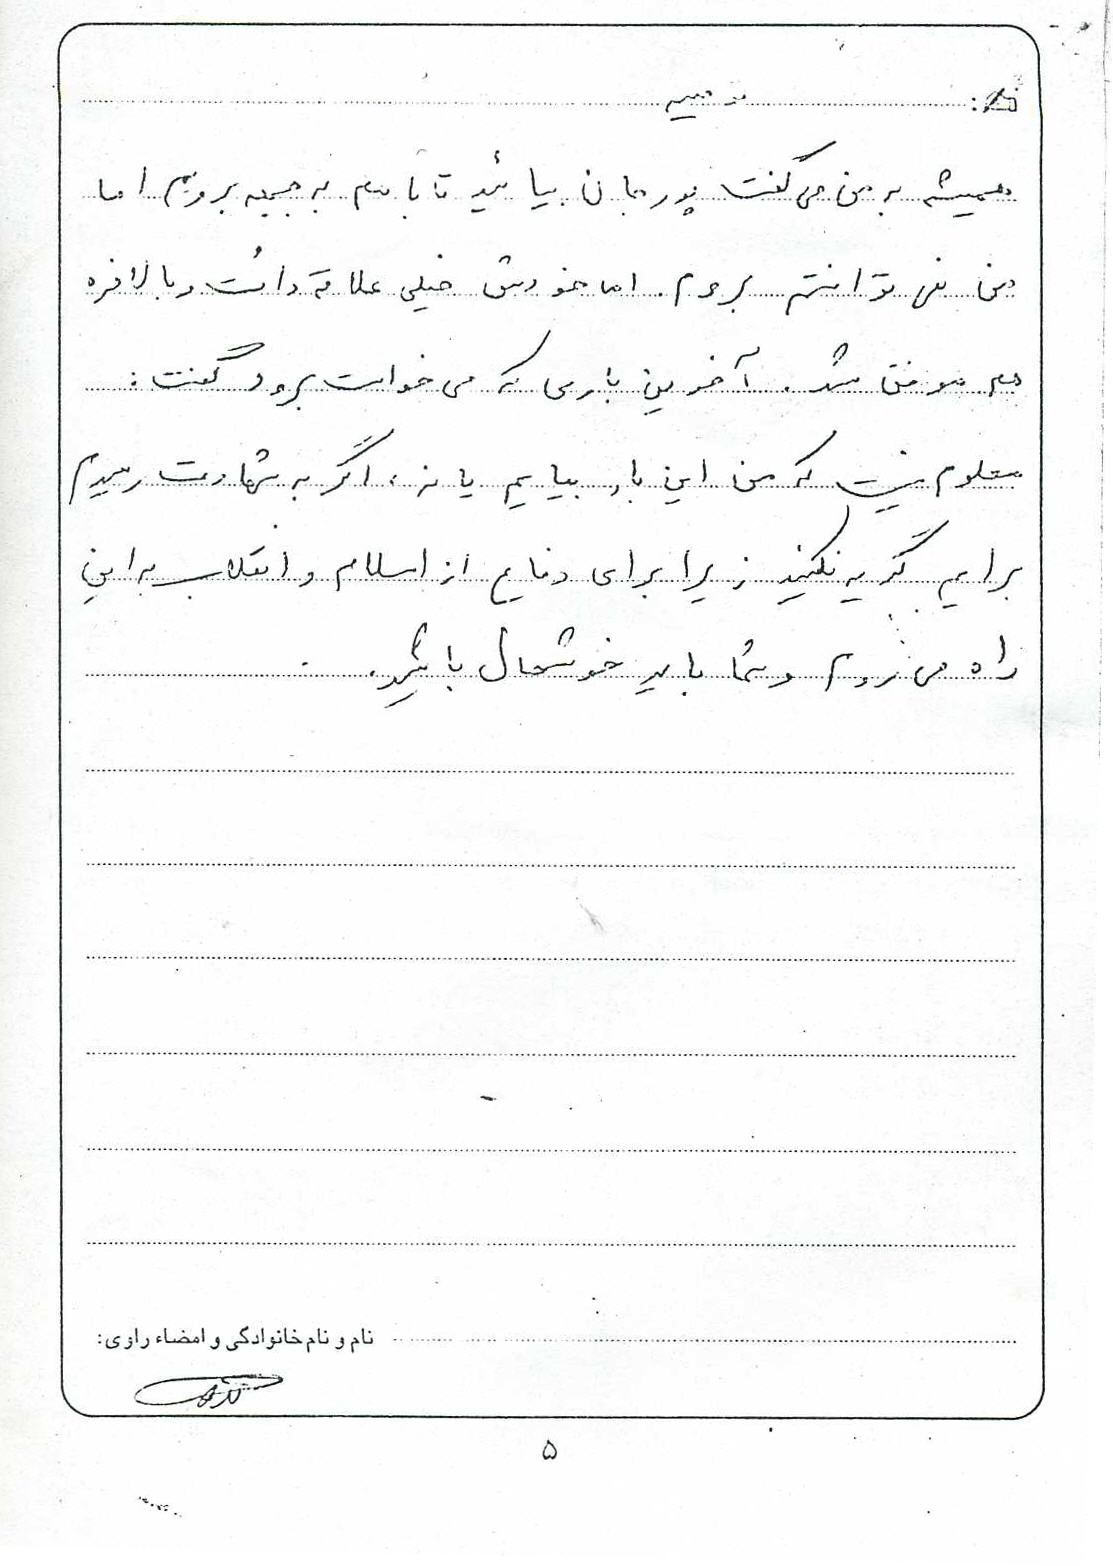 همیشه به من می گفت پدر جان بیائید تا با هم به جبهه برویم اما
من نمی توانستم بروم. اما خودش خیلی علاقه داشت و بالاخره
هم موفق شد. آخرین باری که می خواست برود گفت:
معلوم نیست که من این بار بیایم یا نه، اگر به شهادت رسیدم
برایم گریه نکنید زیرا برای دفاع از اسلام و انقلاب به این
راه می روم و شما باید خوشحال باشید.
نام و نام خانوادگی و امضاء راوی:
۵